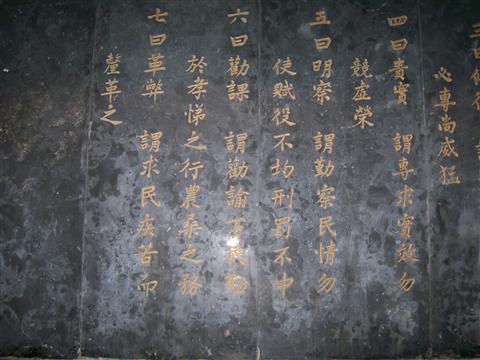 三曰修德
必專尚威猛
四曰貴實 謂專求實效勿
競虛榮
五曰明察 謂勤察民情勿
使賦役不均刑罰不中
六曰勸課 謂勸諭下民勤
於孝悌之行農桑之務
七曰革弊 謂求民疾苦而
釐革之